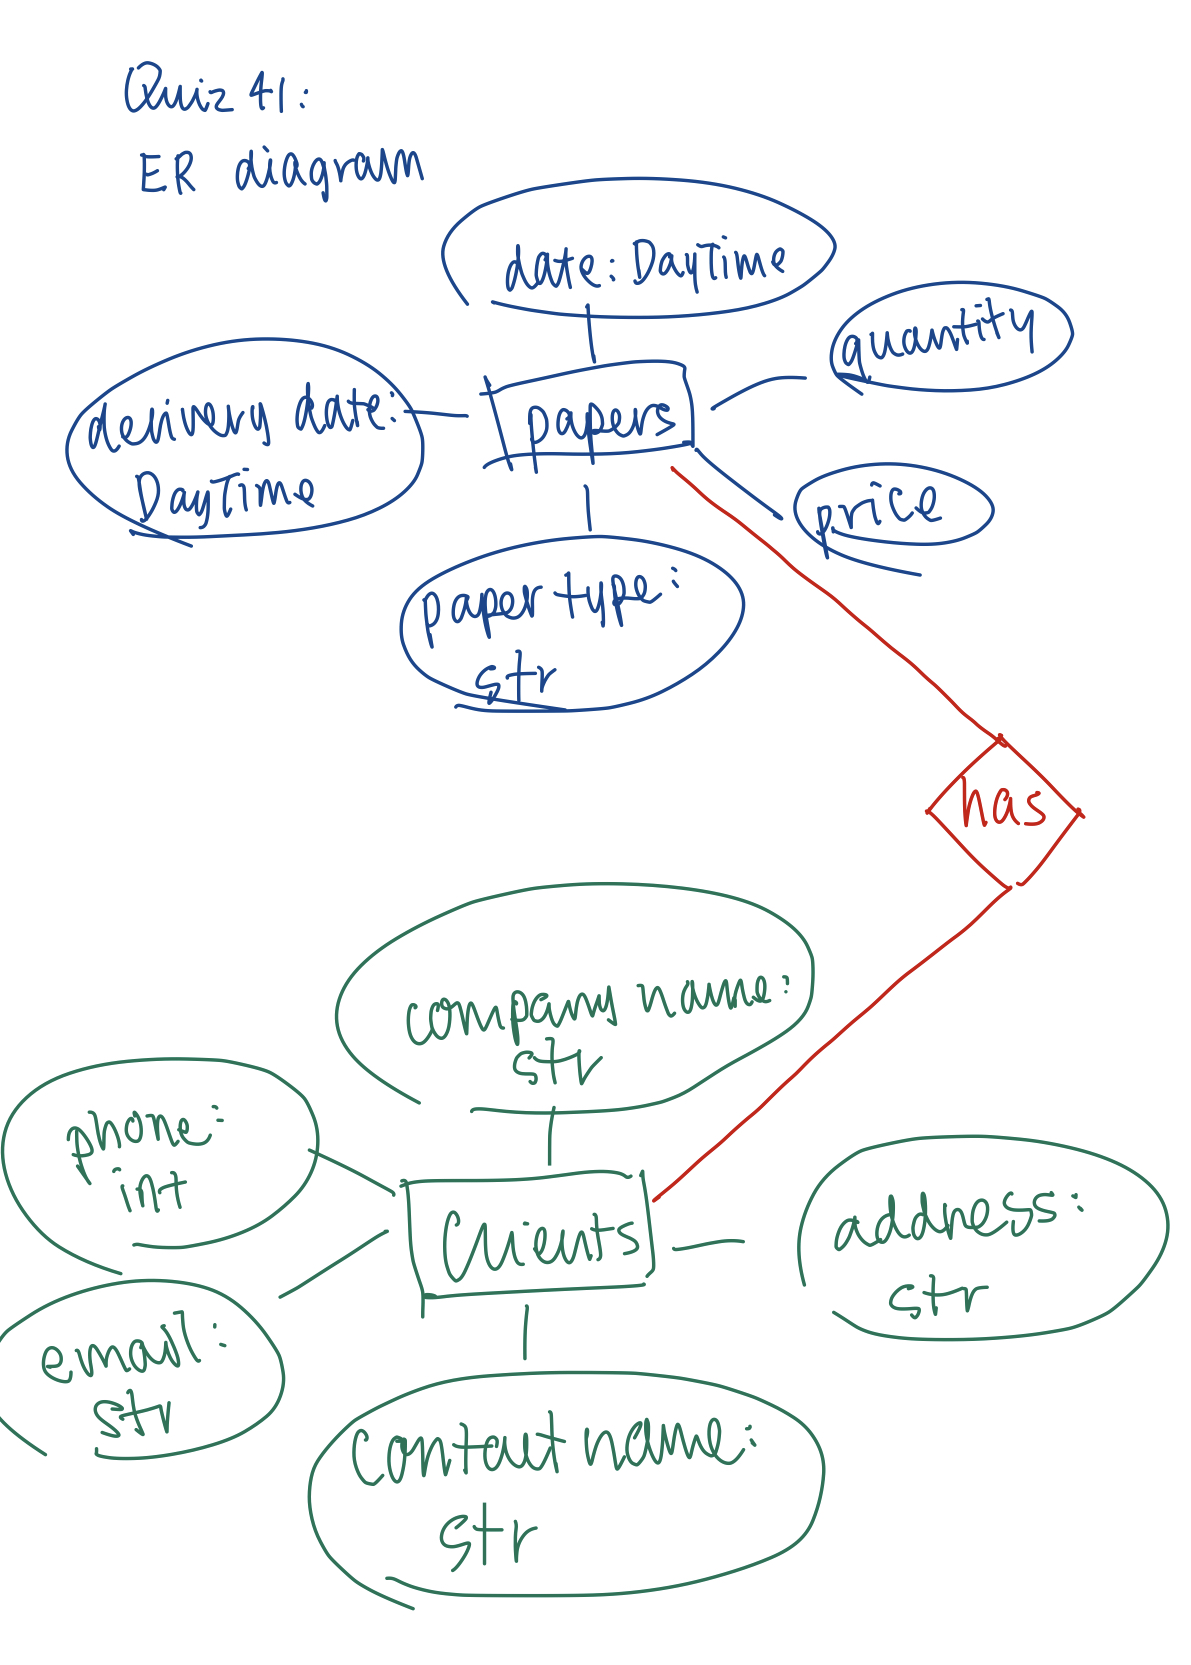 Quiz 41:
ER diagram
date: DayTime
quantity
delivery date:
DayTime
papers
price
paper type:
str
has
company name:
str
phone:
int
Clients
address:
str
email:
str
Contact name:
str